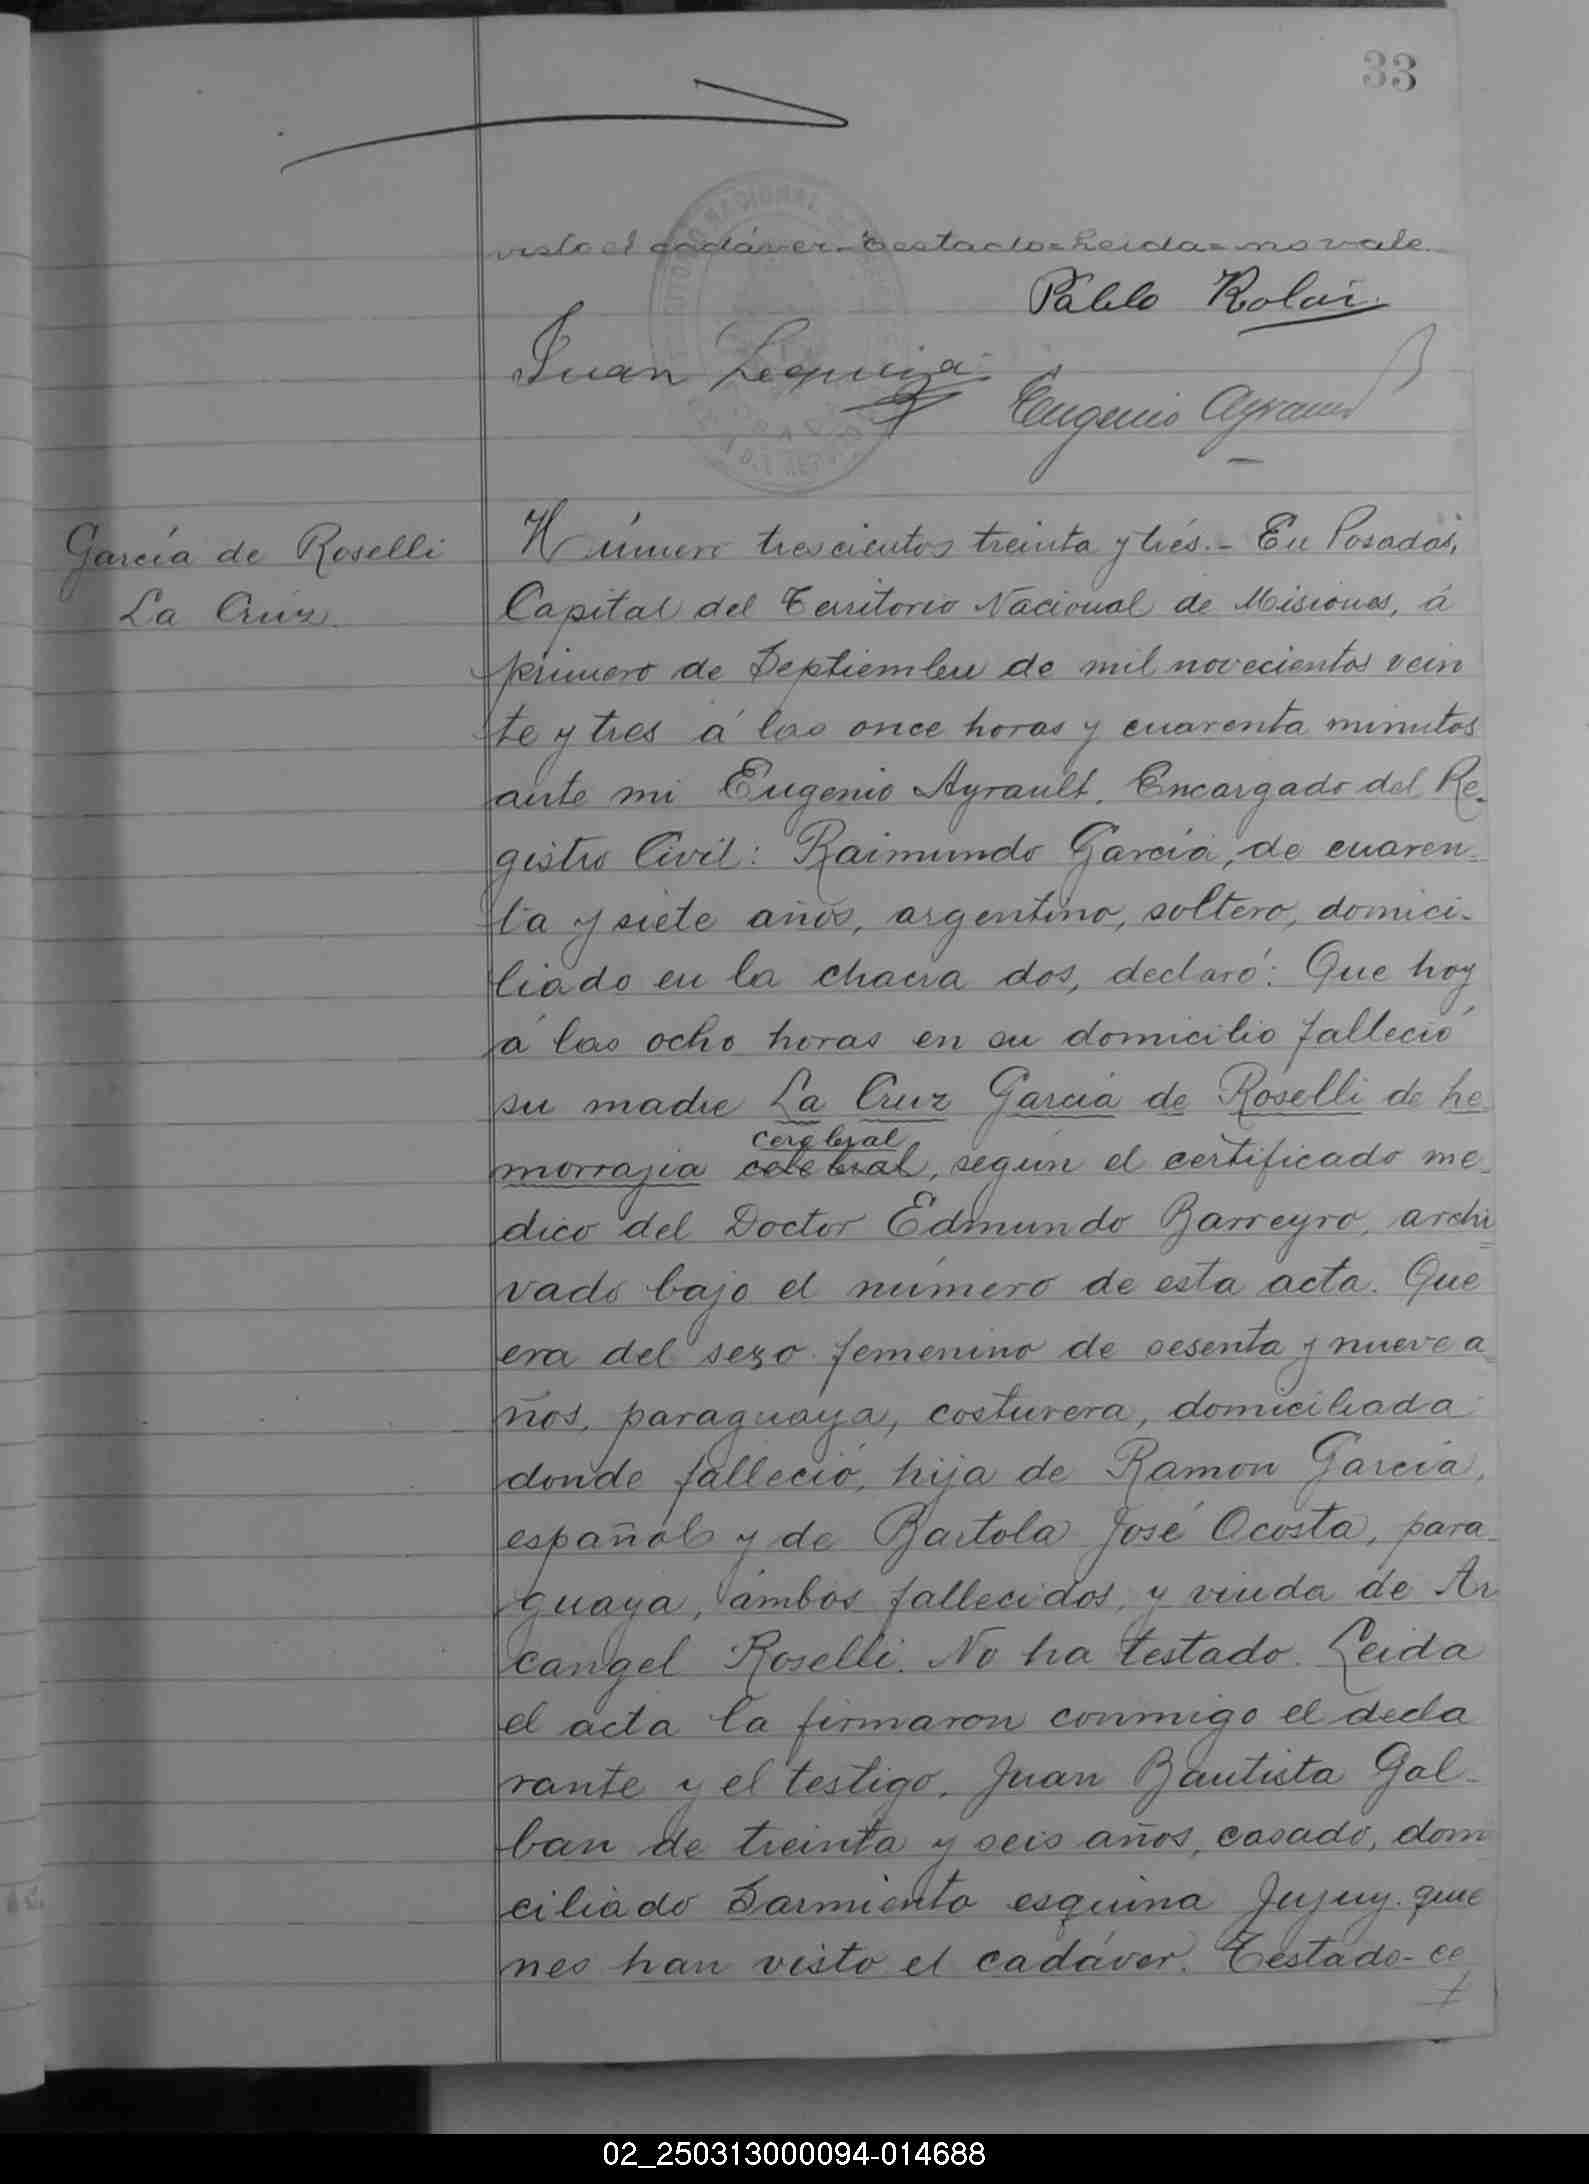 33
visto el cadáver. Testado=Leida=no vale.
Pablo
Juan Leguiza
Eugenio Ayrault
García de Roselli
La Cruz.
Número trescientos treinta y trés.- En Posadas,
Capital del Territorio Nacional de Misiones, á
primero de Septiembre de mil novecientos vein
te y tres á las once horas y cuarenta minutos
ante mi Eugenio Ayrault, Encargado del Re-
gistro Civil: Raimundo García, de cuaren=
ta y siete años, argentino, soltero, domici-
liado en la chacra dos, declaró: Que hoy
á las ocho horas en su domicilio falleció
su madre La Cruz García de Roselli de he
cerebral
morrajia celebral, según el certificado me-
dico del Doctor Edmundo Barreyro, archi
vado bajo el número de esta acta. Que
era del sexo femenino de sesenta y nueve a
ños, paraguaya, costurera, domiciliada
donde falleció, hija de Ramon García,
español y de Bartola José Ocosta, para
guaya, ámbos fallecidos, y viuda de Ar
cangel Roselli. No ha testado. Leida
el acta la firmaron conmigo el decla
rante y el testigo, Juan Bautista Gal-
ban de treinta y seis años, casado, dom
ciliado Sarmiento esquina Jujuy. quie
nes han visto el cadáver. Testado-ce
02_250313000094-014688